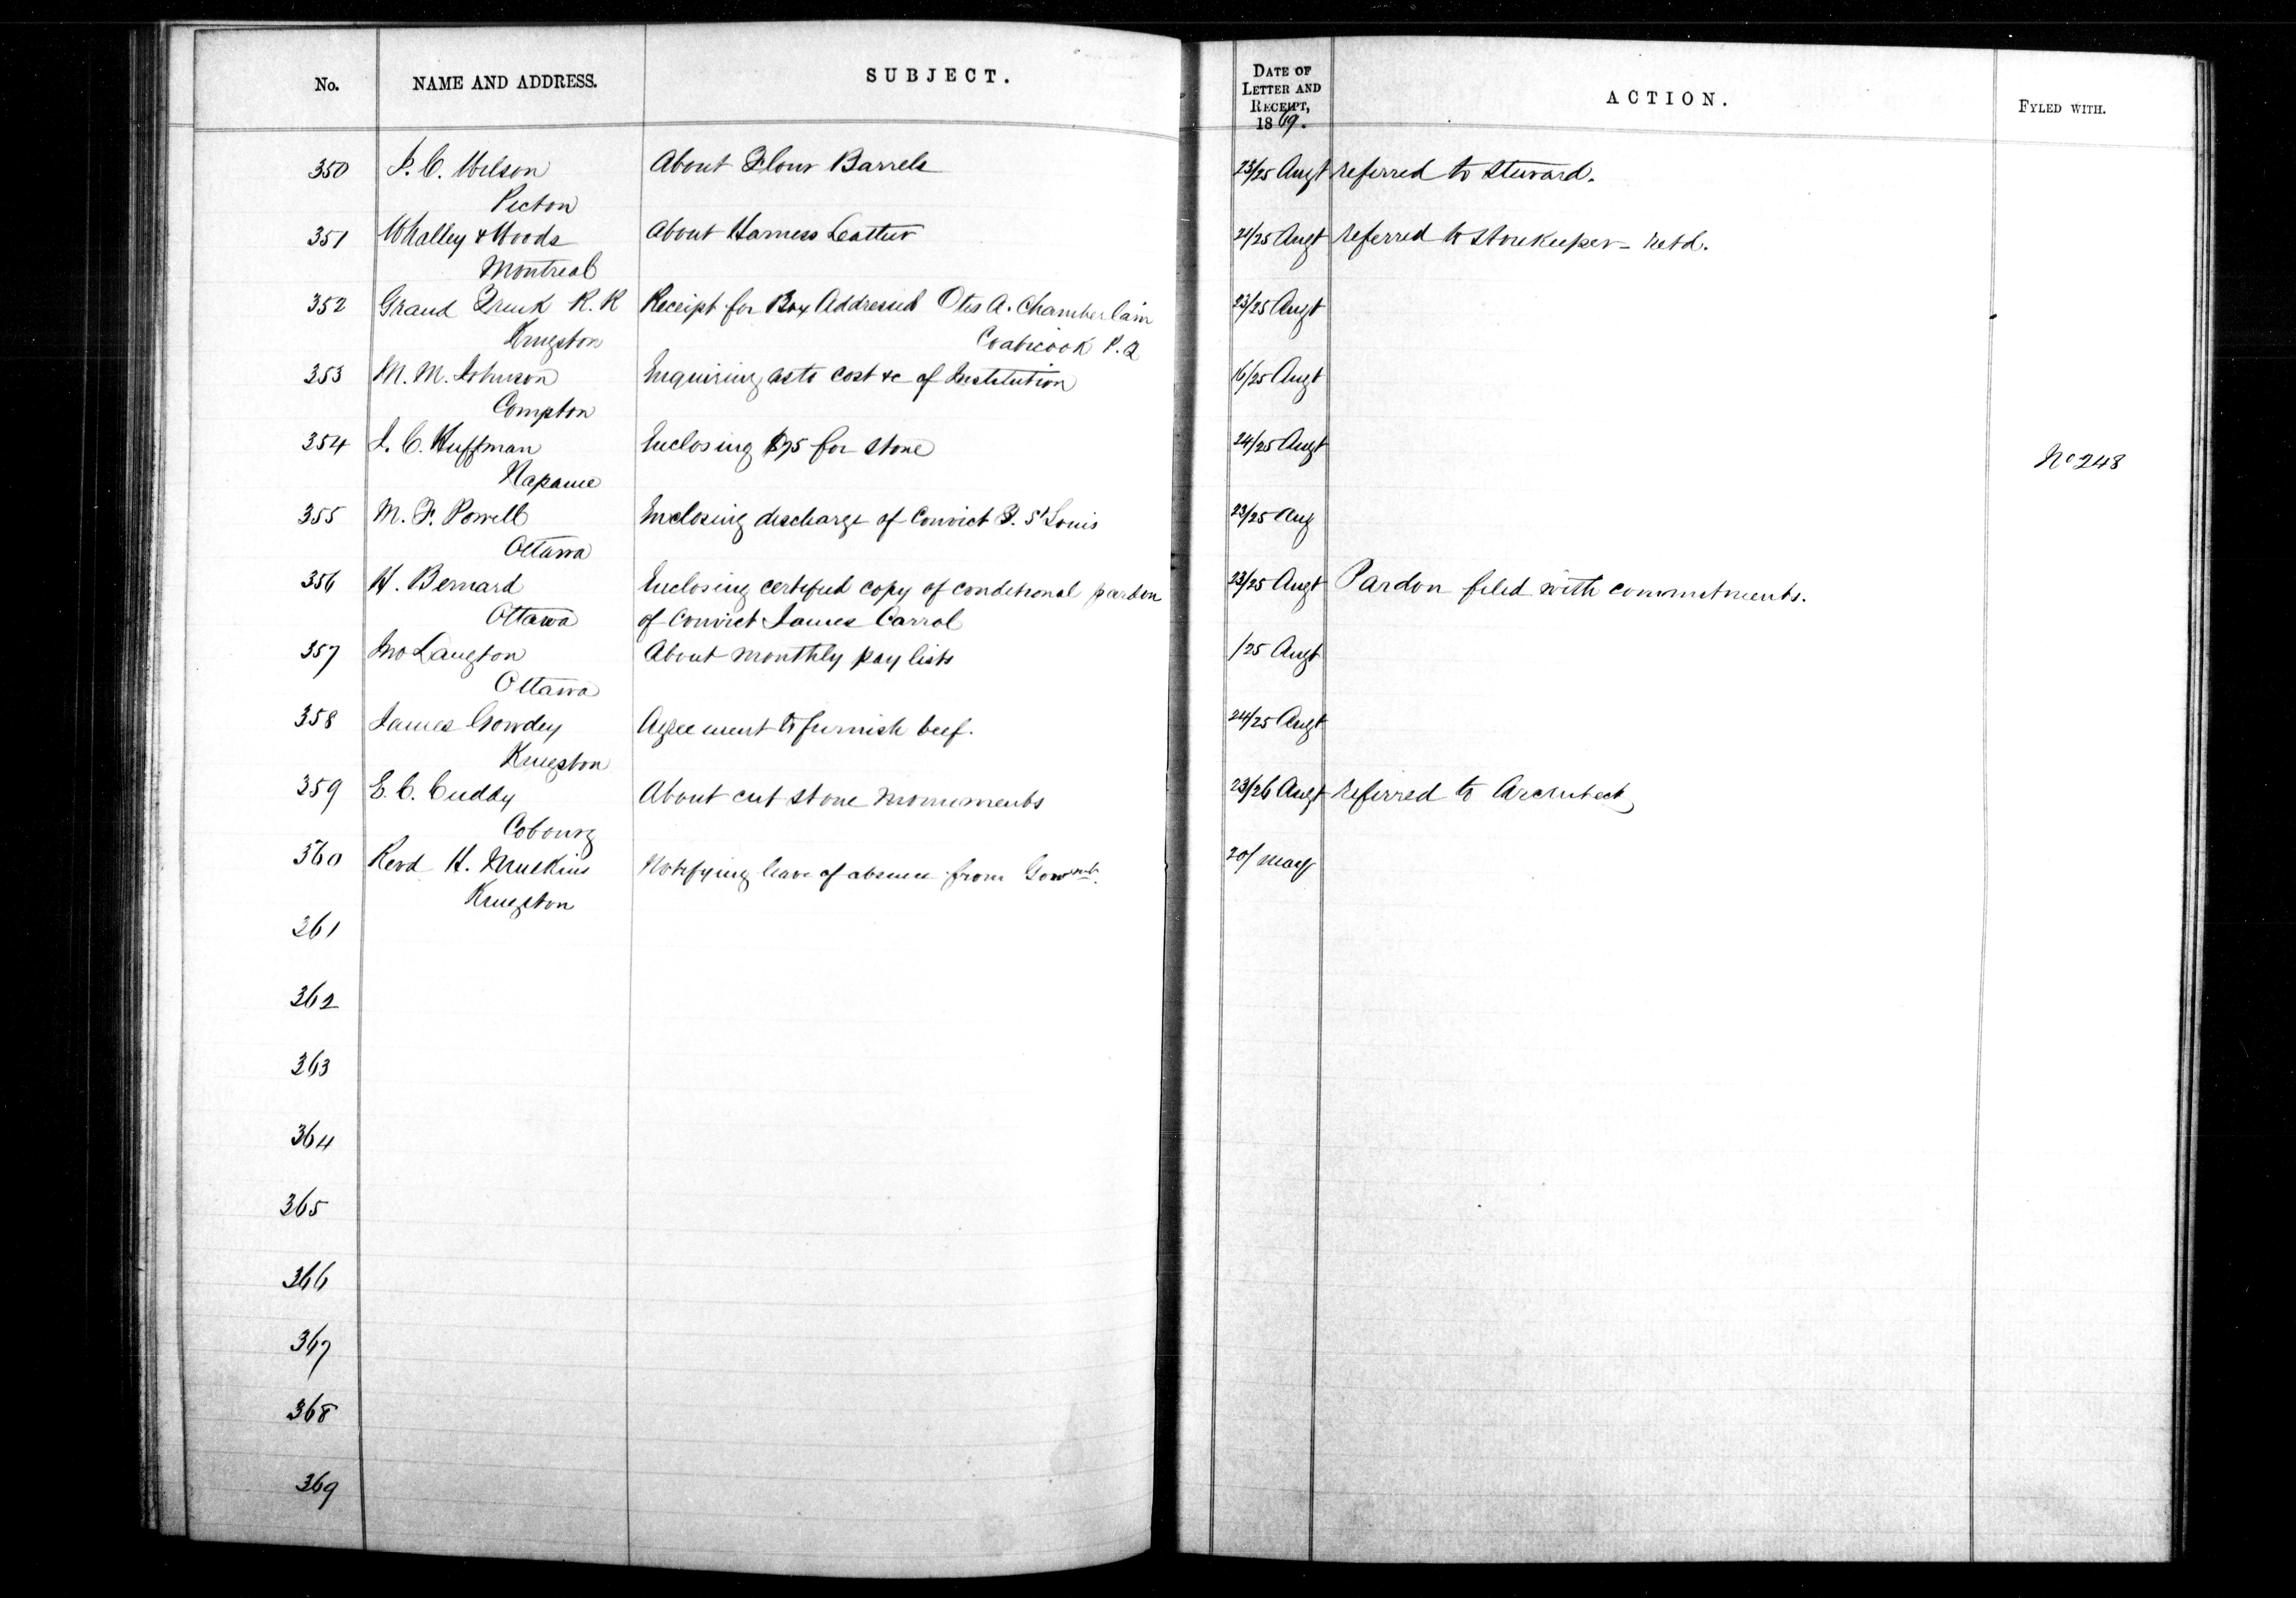 No. NAME AND ADDRESS. SUBJECT. DATE OF LETTER AND RECEIPT, 1869. ACTION. FYLED WITH.
350 J. C. Wilson About Flour Barrels 23/25 Augt referred to Steward.
Picton
351 Whalley & Woods About Harness Leather 24/25 Augt referred to Storekeeper - retd.
Montreal
352 Grand Trunk R. R Receipt for Box Addressed Otis A. Chamberlain 23/25 Augt
Kingston Coaticook P.Q
353 M. M. Johnson Enquiring as to cost &c of Institution 16/25 Augt
Compton
354 J. C. Huffman Enclosing $75 for stone 24/25 Augt No 248
Napanee
355 M. F. Powell Enclosing discharge of Convict F. St Louis 23/25 Aug
Ottawa
356 H. Bernard Enclosing certified copy of conditional pardon 23/25 Augt Pardon filed with commitments.
Ottawa of Convict James Carrol
357 Jno Langton About monthly pay lists /25 Augt
Ottawa
358 James Gowdey Agreement to furnish beef. 24/25 Augt
Kingston
359 E. C. Cuddy About cut stone monuments 23/26 Augt referred to Architect
Cobourg
360 Revd H. Mulkins Notifying leave of absence from Govmnt. 20/ May
Kingston
361
362
363
364
365
366
367
368
369